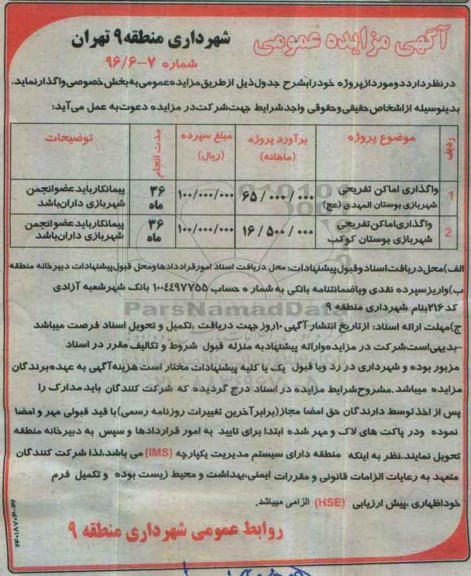 آگهی مزایده عمومی
شهرداری منطقه ۹ تهران
شماره ۷-۹۶/۶
در نظر دارد دو مورد از پروژه خود را بشرح جدول ذیل از طریق مزایده عمومی به بخش خصوصی واگذار نماید.
بدینوسیله از اشخاص حقیقی و حقوقی واجد شرایط جهت شرکت در مزایده دعوت به عمل می آید:
ردیف موضوع پروژه برآورد پروژه (ماهانه) مبلغ سپرده (ریال) مدت انجام توضیحات
1 واگذاری اماکن تفریحی شهربازی بوستان المهدی (عج) ۶۵/۰۰۰/۰۰۰ ۱۰۰/۰۰۰/۰۰۰ ۳۶ ماه پیمانکار باید عضو انجمن شهربازی داران باشد
2 واگذاری اماکن تفریحی شهربازی بوستان کوکب ۱۶/۵۰۰/۰۰۰ ۱۰۰/۰۰۰/۰۰۰ ۳۶ ماه پیمانکار باید عضو انجمن شهربازی داران باشد
الف) محل دریافت اسناد و قبول پیشنهادات: محل دریافت اسناد امور قراردادها و محل قبول پیشنهادات دبیرخانه منطقه
ب) واریز سپرده نقدی و یا ضمانتنامه بانکی به شماره حساب ۱۰۰۴۴۹۷۷۵۵ بانک شهر شعبه آزادی
کد ۲۱۶ بنام شهرداری منطقه ۹
ParsNamadData
ج) مهلت ارائه اسناد: از تاریخ انتشار آگهی ۱۰ روز جهت دریافت ،تکمیل و تحویل اسناد فرصت میباشد
-بدیهی است شرکت در مزایده و ارائه پیشنهاد به منزله قبول شروط و تکالیف مقرر در اسناد
مزبور بوده و شهرداری در رد و یا قبول یک یا کلیه پیشنهادات مختار است هزینه آگهی به عهده برندگان
مزایده میباشد. مشروح شرایط مزایده در اسناد درج گردیده که شرکت کنندگان باید مدارک را
پس از اخذ توسط دارندگان حق امضا مجاز (برابر آخرین تغییرات روزنامه رسمی) با قید قبولی مهر و امضا
نموده ودر پاکت های لاک و مهر شده ابتدا برای تایید به امور قراردادها و سپس به دبیرخانه منطقه
تحویل نمایند. نظر به اینکه منطقه دارای سیستم مدیریت یکپارچه (IMS) می باشد، لذا شرکت کنندگان
متعهد به رعایات الزامات قانونی و مقررات ایمنی، بهداشت و محیط زیست بوده و تکمیل فرم
خوداظهاری ،پیش ارزیابی (HSE) الزامی میباشد.
روابط عمومی شهرداری منطقه ۹